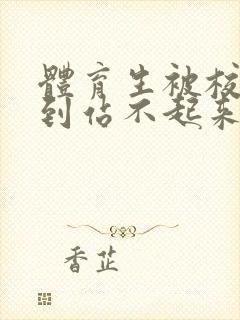 體育生被校
到佔不起來
香芷